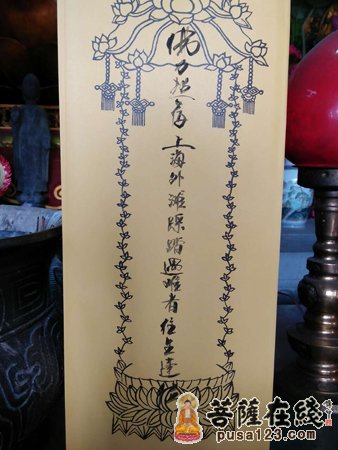 佛力超荐上海外滩踩踏遇难者往生莲位
菩薩在綫
pusa123.com